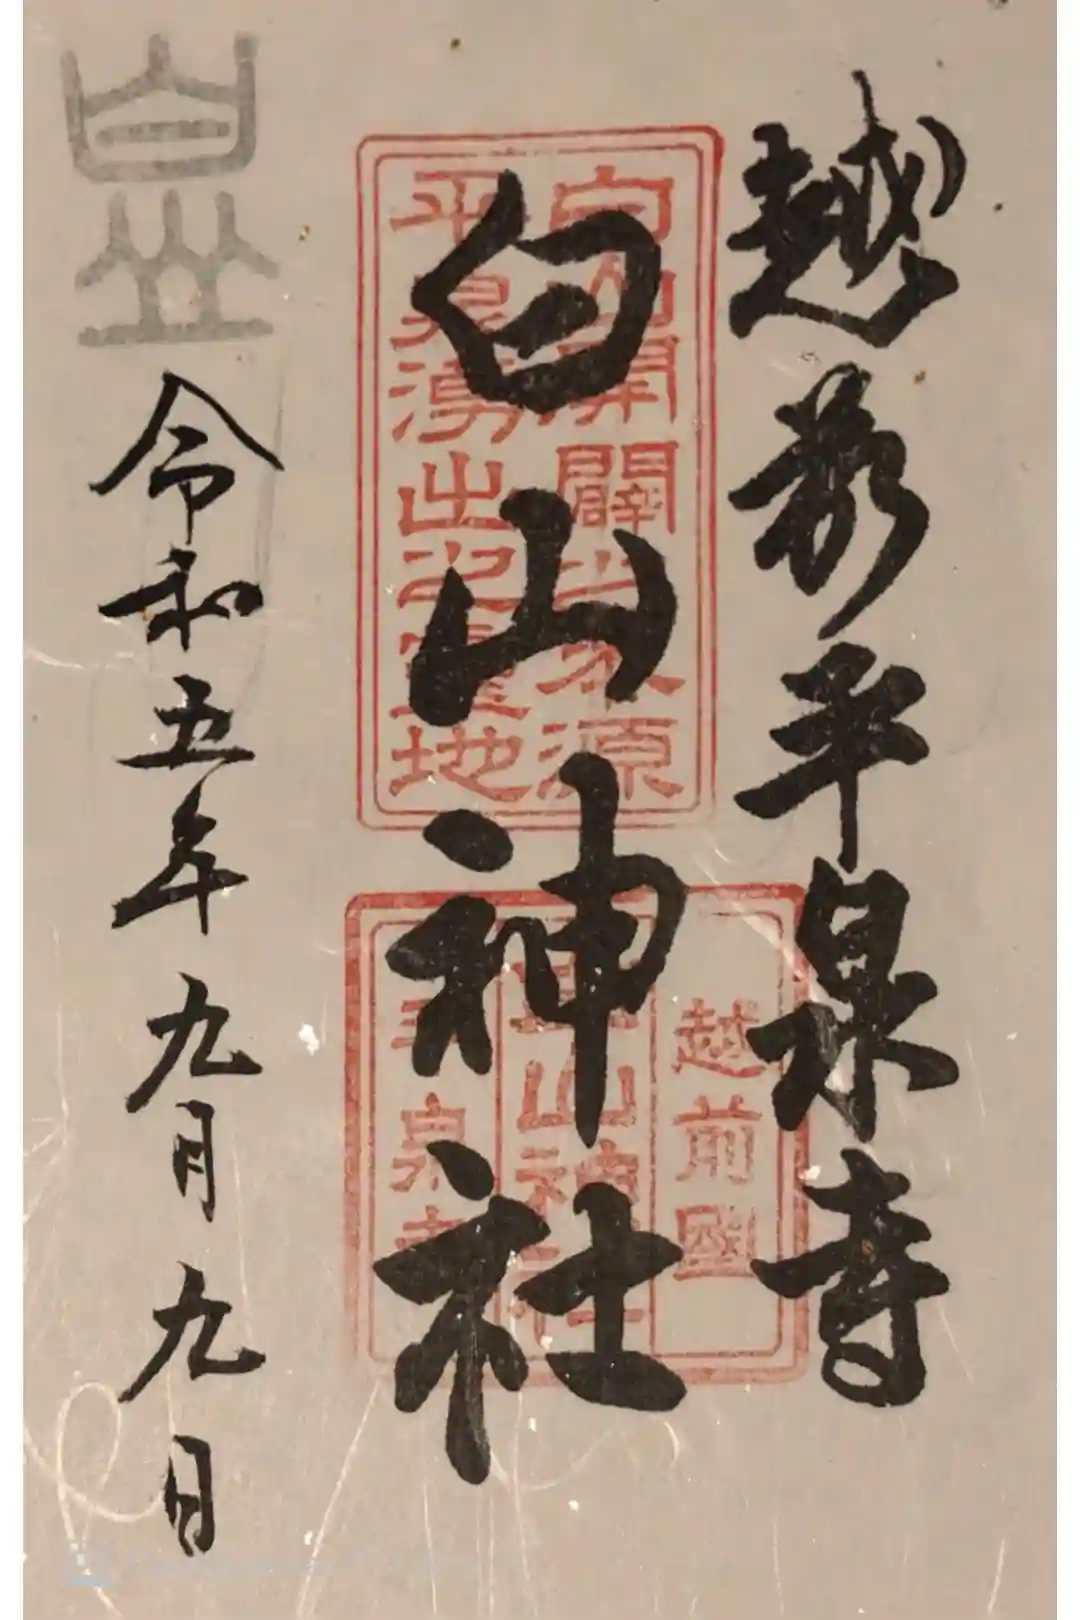 越前平泉寺
白山神社
令和五年九月九日
白山開闢之本源
平泉湧出之靈地
越前國
白山神社
平泉寺